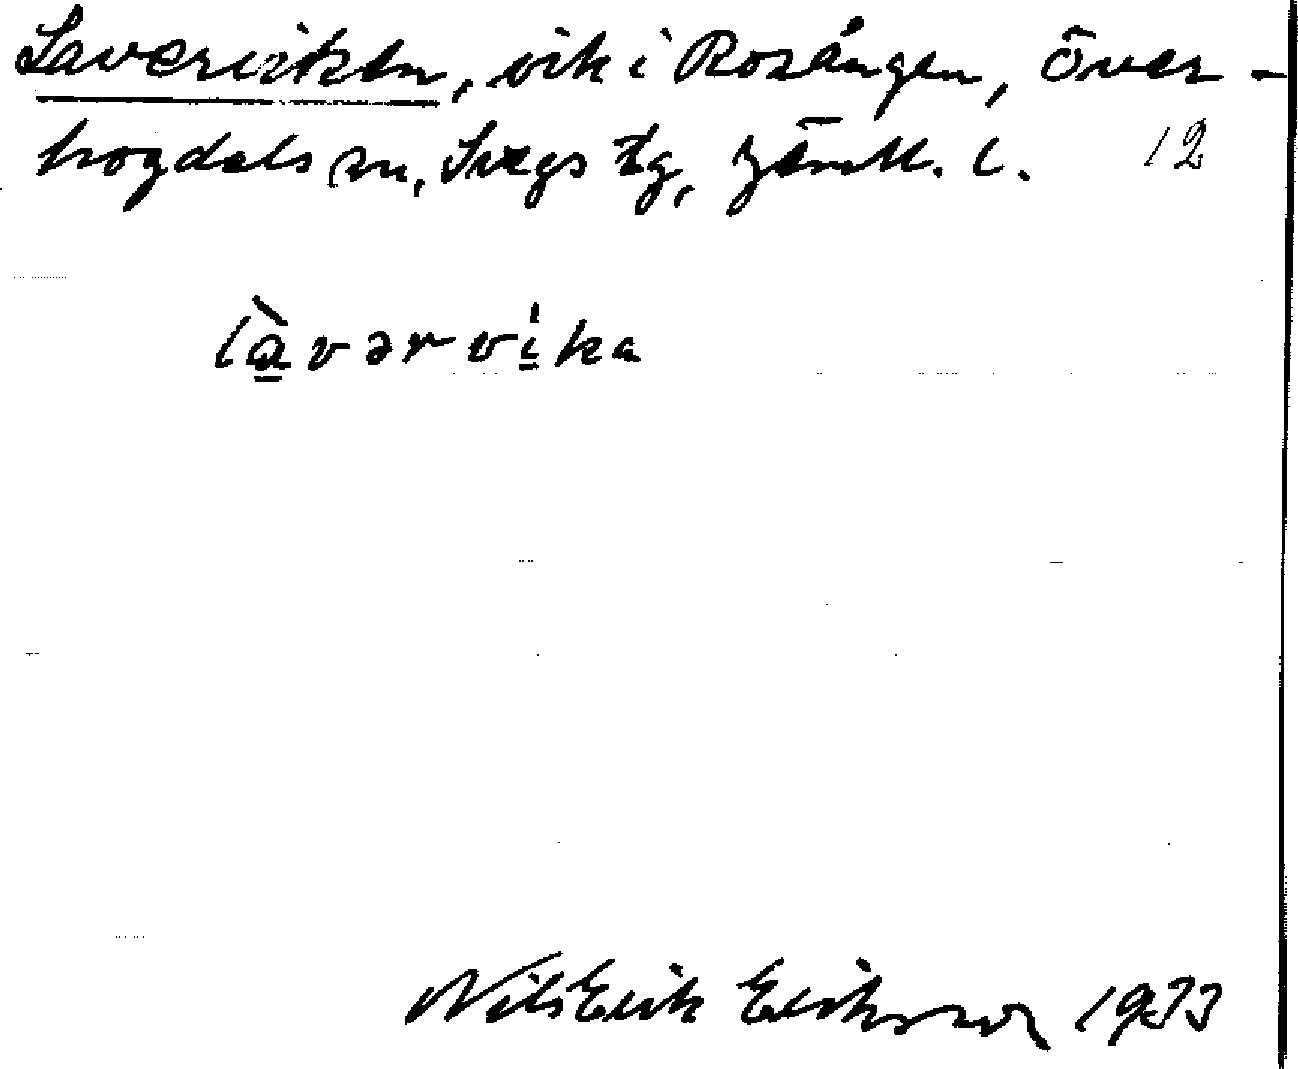 Laverviken, vik i Rosången, Över-
hogdals sn, Svegs tg, Jämtl. l. 12
làvərvi̍ka
Nils Erik Eriksson 1933